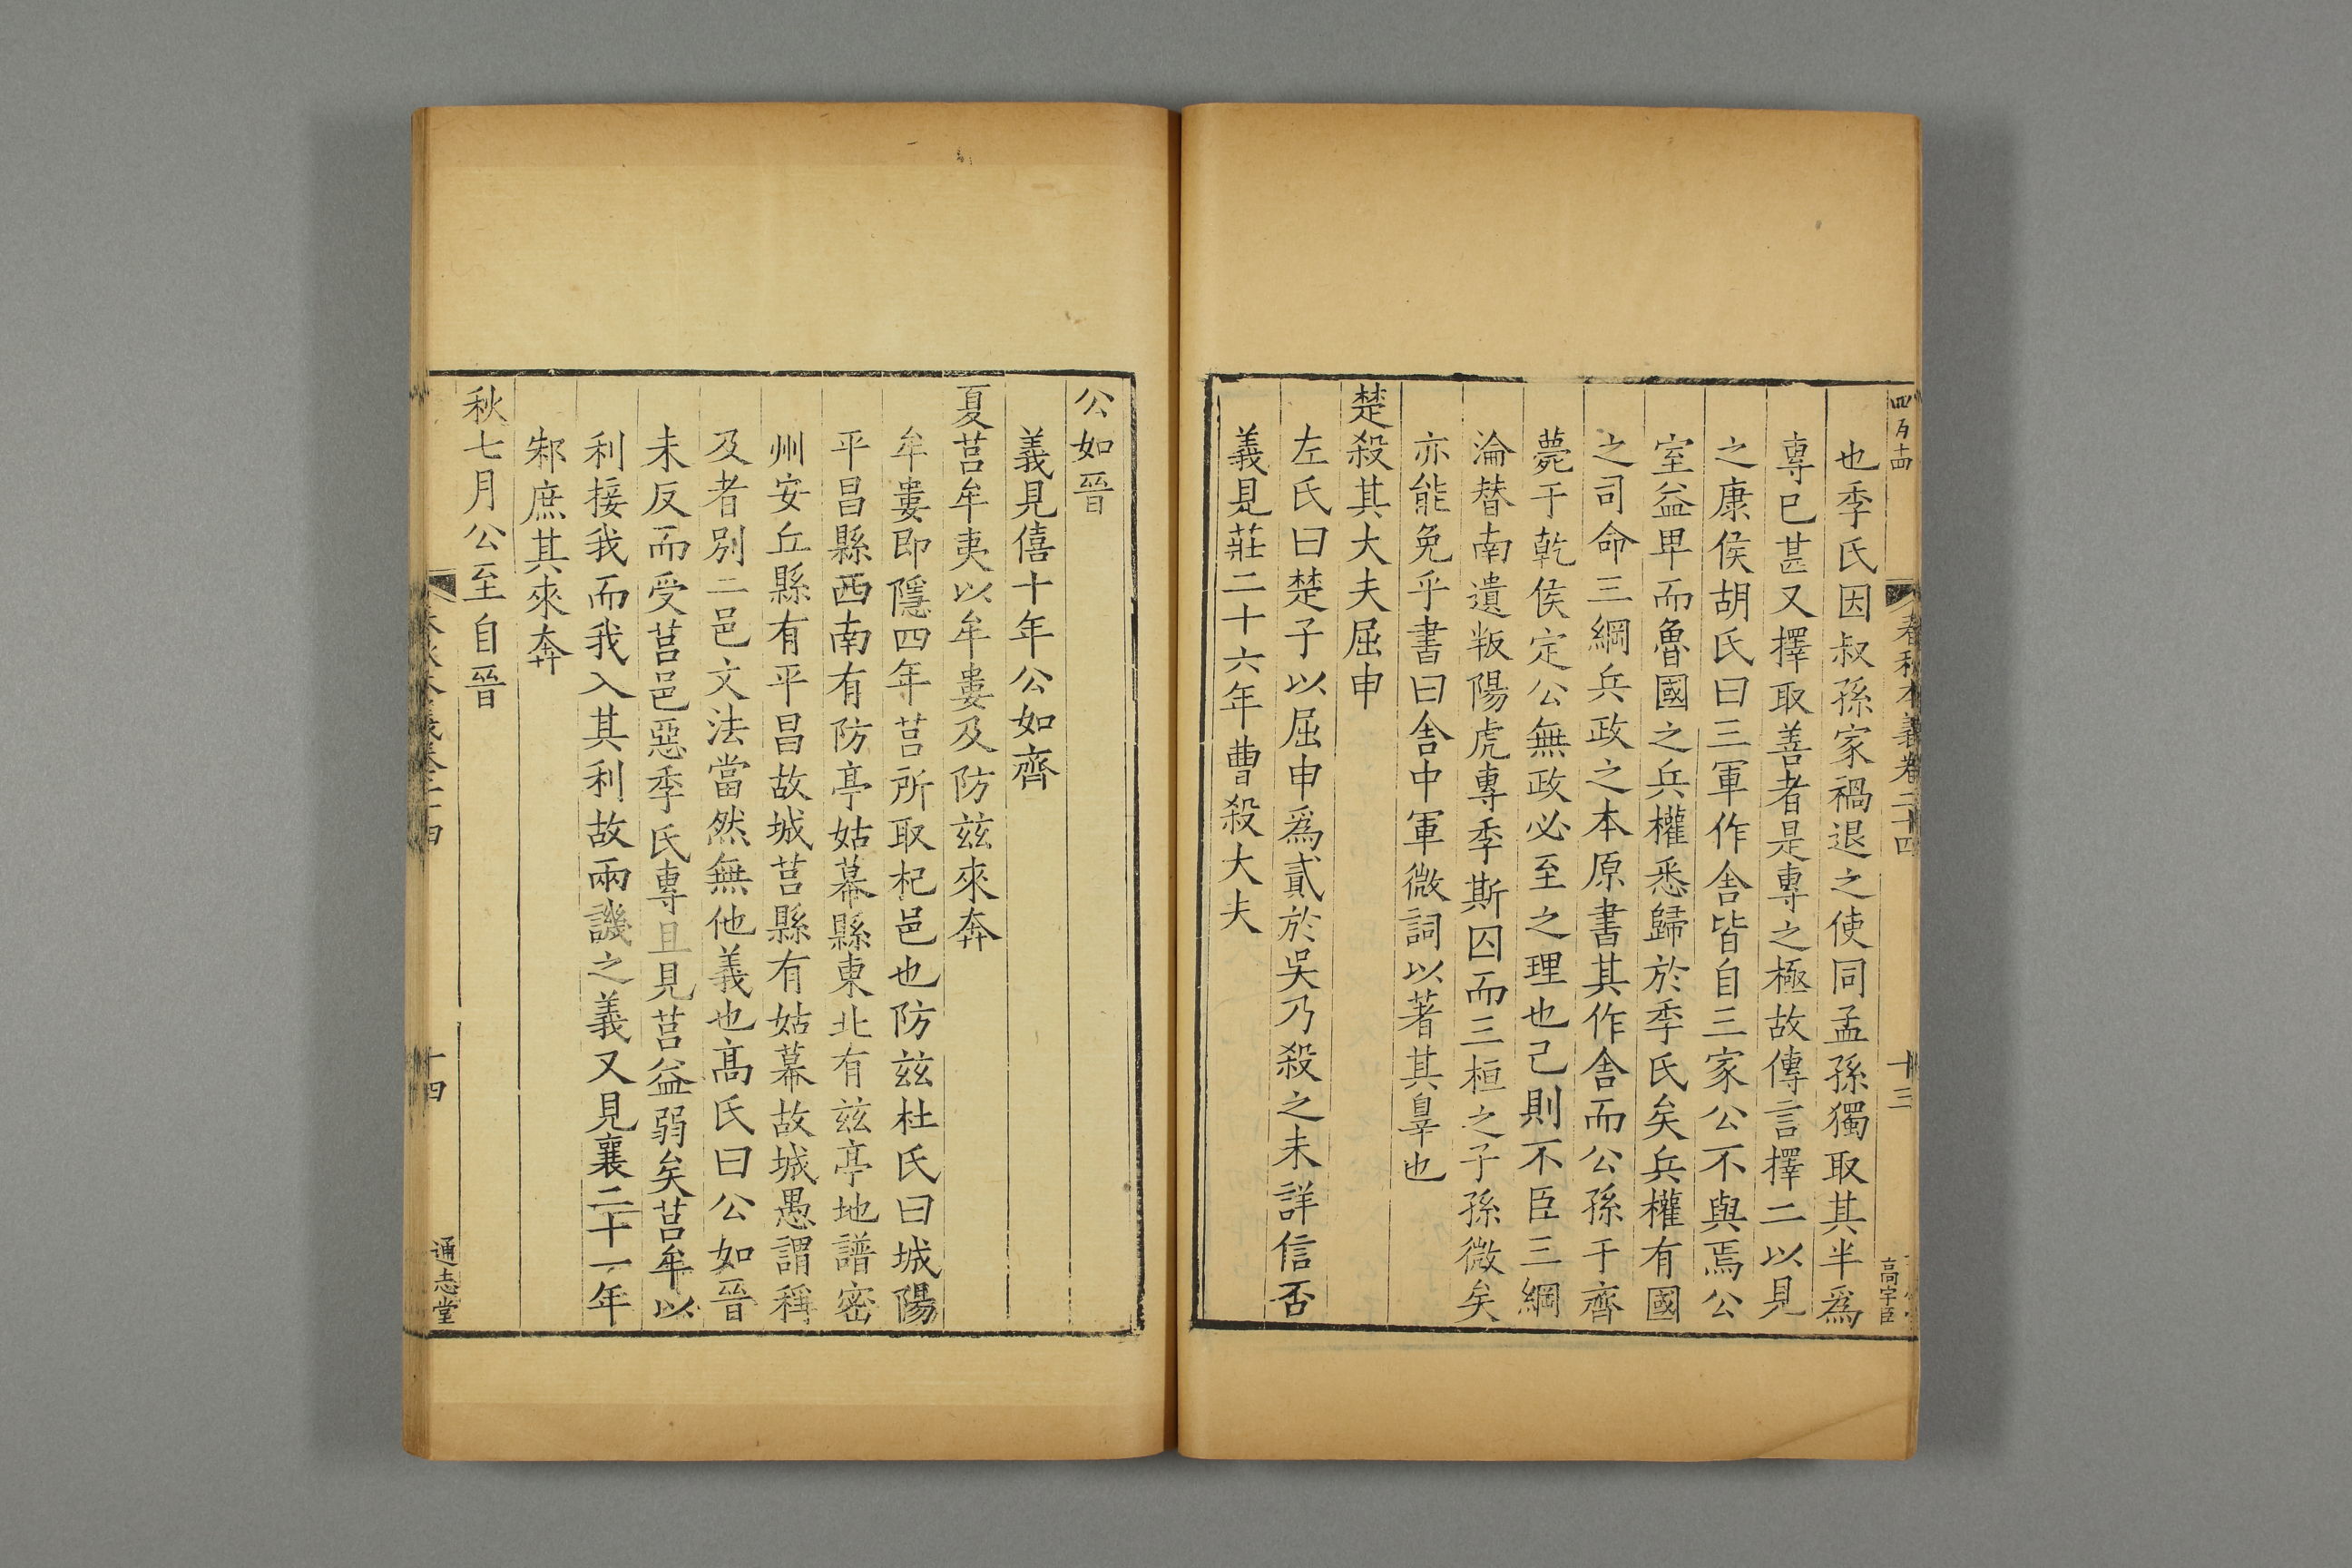 春秋本義卷二十四
十三
高宇臣
也季氏因叔孫家禍退之使同孟孫獨取其半爲
專已甚又擇取善者是專之極故傳言擇二以見
之康侯胡氏曰三軍作舍皆自三家公不與焉公
室益卑而魯國之兵權悉歸於季氏矣兵權有國
之司命三綱兵政之本原書其作舍而公孫于齊
薨于乾侯定公無政必至之理也己則不臣三綱
淪替南遺叛陽虎專季斯囚而三桓之子孫微矣
亦能免乎書曰舍中軍微詞以著其辠也
楚殺其大夫屈申
左氏曰楚子以屈申爲貳於吳乃殺之未詳信否
義見莊二十六年曹殺大夫
公如晉
義見僖十年公如齊
夏莒牟夷以牟婁及防茲來奔
牟婁即隱四年莒所取杞邑也防茲杜氏曰城陽
平昌縣西南有防亭姑幕縣東北有茲亭地譜密
州安丘縣有平昌故城莒縣有姑幕故城愚謂稱
及者別二邑文法當然無他義也高氏曰公如晉
未反而受莒邑惡季氏專且見莒益弱矣莒牟以
利接我而我入其利故兩譏之義又見襄二十一年
邾庶其來奔
秋七月公至自晉
十四
通志堂